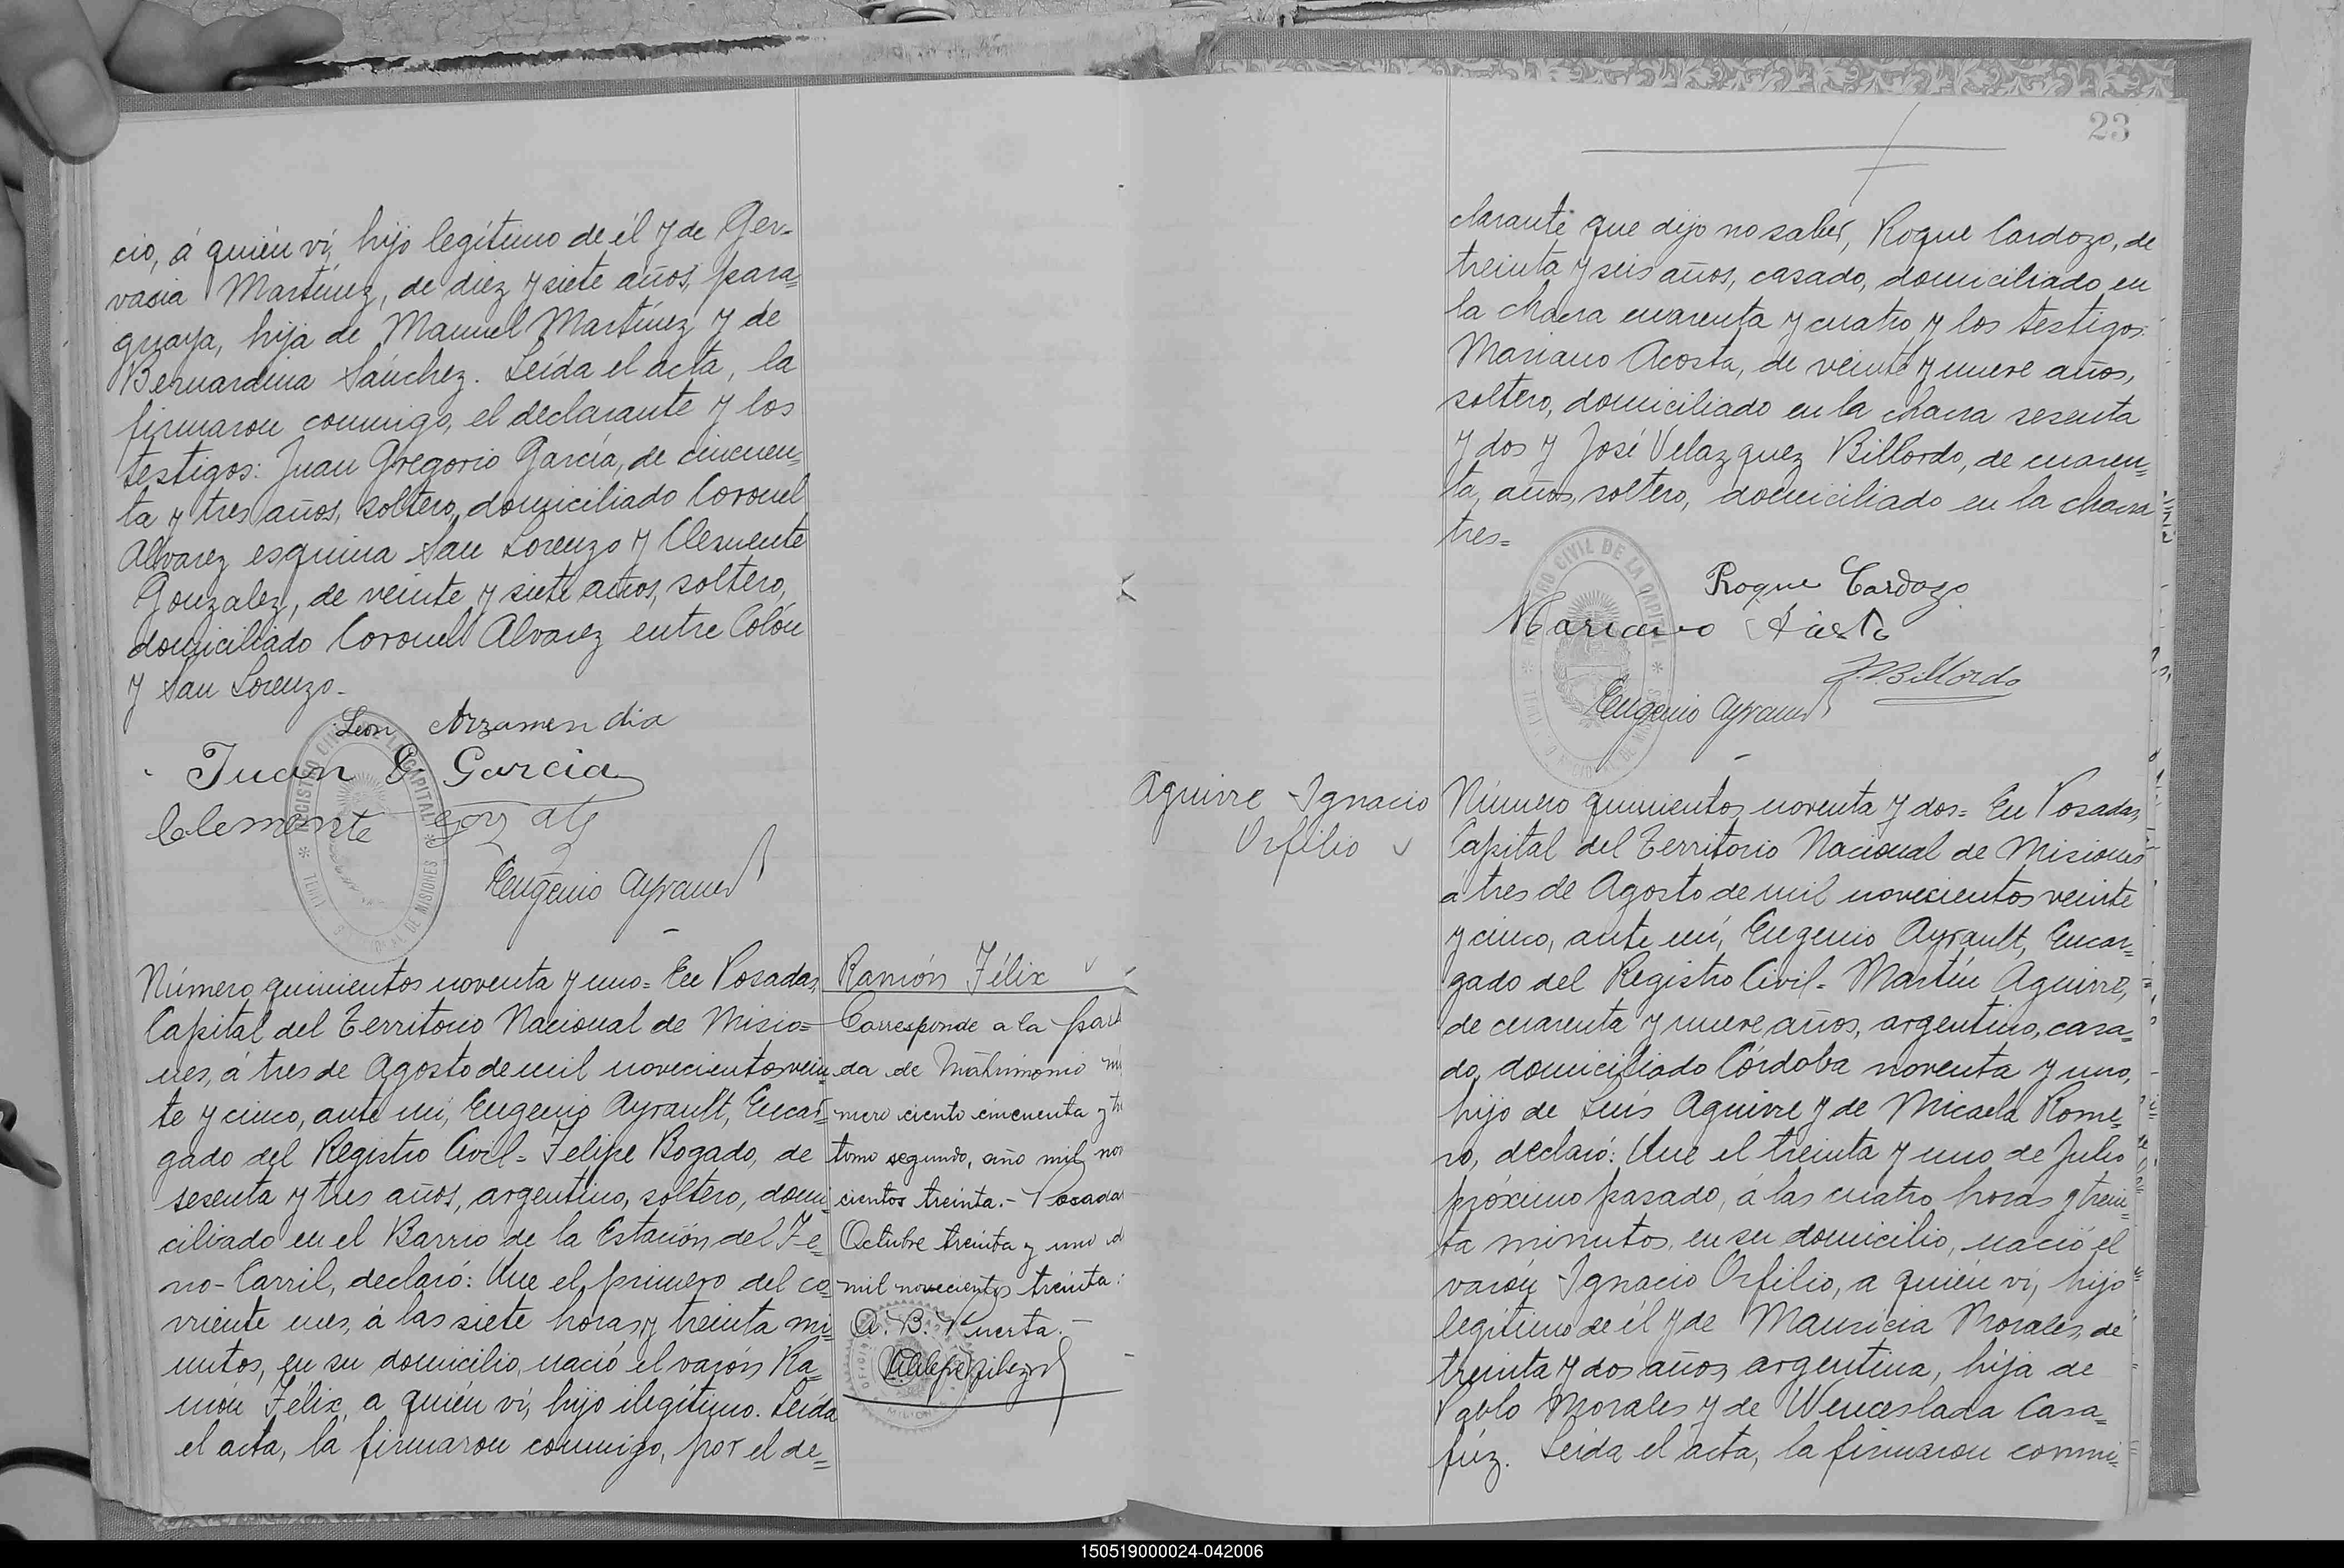 cio, á quién ví, hijo legítimo de él y de Ger-
vasia Martínez, de diez y siete años, para=
guaya, hija de Manuel Martínez y de
Bernardina Sánchez. Leída el acta, la
firmaron conmigo, el declarante y los
testigos: Juan Gregorio García, de cincuen=
ta y tres años, soltero, domiciliado Coronel
Alvarez esquina San Lorenzo y Clemente
Gonzalez, de veinte y siete años, soltero,
domiciliado Coronel Alvarez entre Colón
y San Lorenzo.-
León Arzamendia
Juan G García
Clemente
Eugenio Ayrault
Número quinientos noventa y uno= En Posadas,
Capital del Territorio Nacional de Misio=
nes, á tres de Agosto de mil novecientos vein=
te y cinco, ante mi, Eugenio Ayrault, Encar=
gado del Registro Civil= Felipe Bogado, de
sesenta y tres años, argentino, soltero, domi=
ciliado en el Barrio de la Estación del Fe=
rro-Carril, declaró: Que el primero del co=
rriente mes, á las siete horas y treinta mi=
nutos, en su domicilio, nació el varón Ra=
món Félix, a quién ví, hijo ilegítimo. Leída
el acta, la firmaron conmigo, por el de=
Ramón Félix
Corresponde a la part
da de Matrimonio nú
mero ciento cincuenta y
tomo segundo, año mil no
cientos treinta.- Posada
Octubre treinta y uno d
mil novecientos treinta:
A. B. Puerta.-
23
clarante que dijo no saber, Roque Cardozo, de
treinta y seis años, casado, domiciliado en
la chacra cuarenta y cuatro y los testigos:
Mariano Acosta, de veinte y nueve años,
soltero, domiciliado en la chacra sesenta
y dos y José Velazquez Billordo, de cuaren=
ta, años, soltero, domiciliado en la chacra
tres=
REGISTRO CIVIL DE LA CAPITAL
Roque Cardozo
Mariano Acosta
J. V. Billordo
Eugenio Ayrault
Aguirre Ignacio
Orfilio
Número quinientos noventa y dos= En Posadas,
Capital del Territorio Nacional de Misiones
a tres de Agosto de mil novecientos veinte
y cinco, ante mí, Eugenio Ayrault, Encar=
gado del Registro Civil= Martín Aguirre,
de cuarenta y nueve años, argentino, casa=
do, domiciliado Córdoba noventa y uno,
hijo de Luis Aguirre y de Micaela Rome=
ro, declaró: Que el treinta y uno de Julio
próximo pasado, á las cuatro horas y trein=
ta minutos, en su domicilio, nació el
varón Ignacio Orfilio, a quién ví, hijo
legítimo de él y de Mauricia Morales, de
treinta y dos años, argentina, hija de
Pablo Morales y de Wenceslada Casa=
fúz. Leída el acta, la firmaron conmi=
150519000024-042006